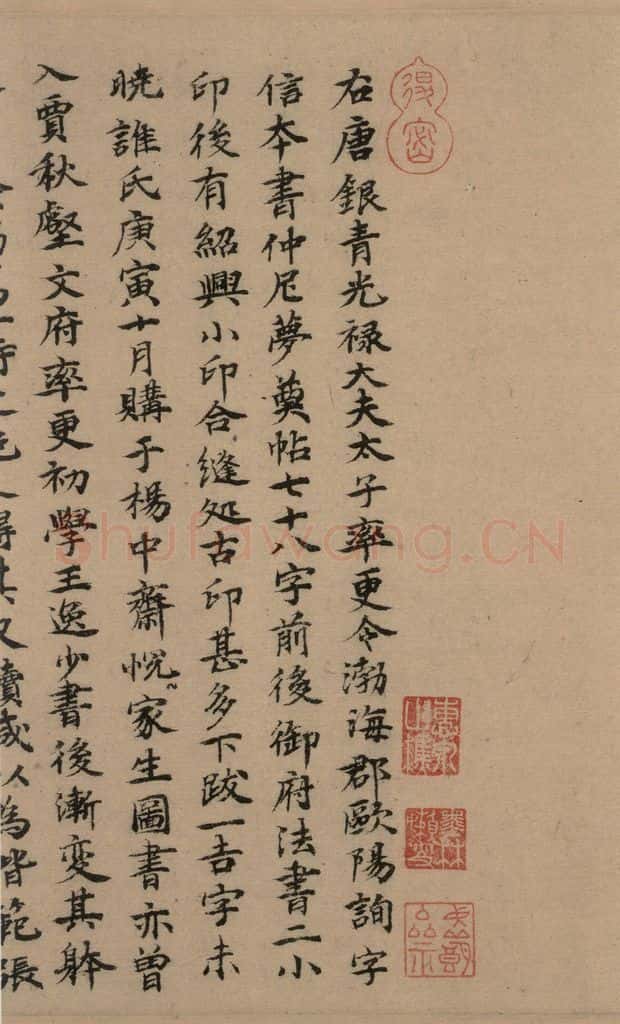 右唐銀青光禄大夫太子率更令渤海郡歐陽詢字
信本書仲尼夢奠帖七十八字前後御府法書二小
印後有紹興小印合縫处古印甚多下跋一吉字未
曉誰氏庚寅十月購于楊中齋悅〻家生圖書亦曾
入賈秋壑文府率更初學王逸少書後漸變其躰
尺牘或以為皆範張
shufawang.CN